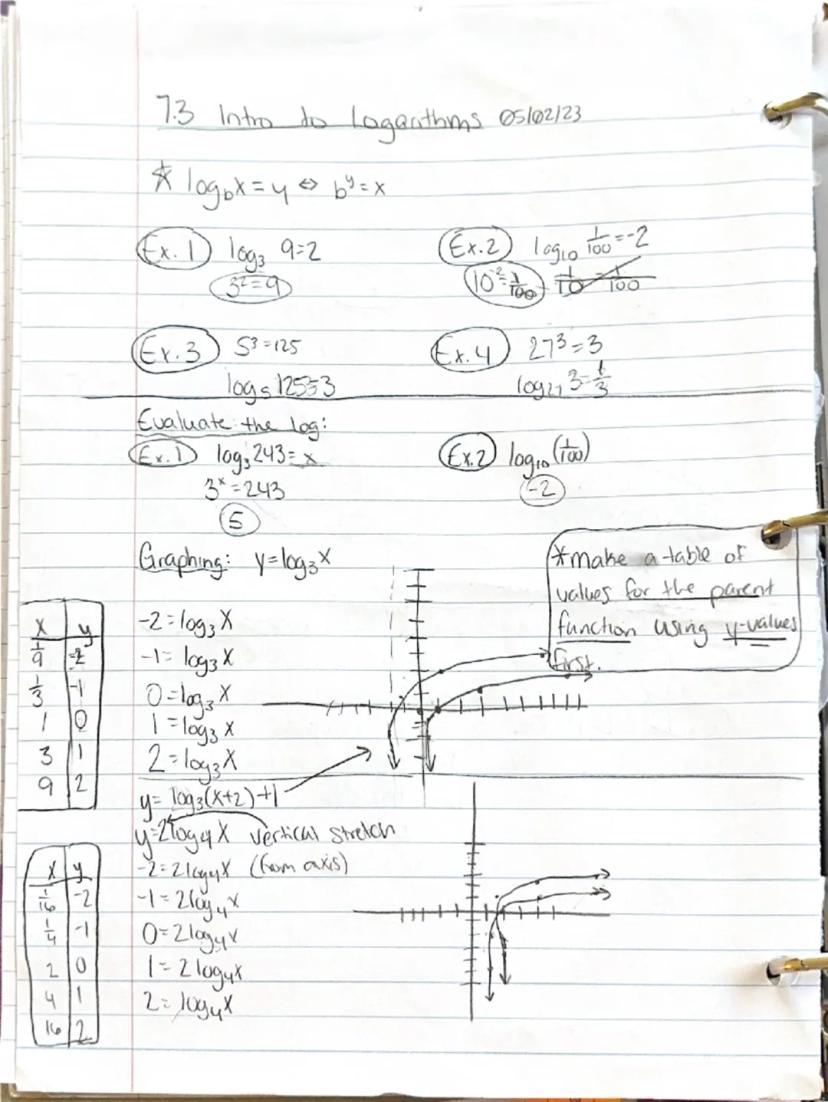 7.3 Intro to Logarithms 05/02/23
* log_b x = y ⇔ b^y = x
Ex. 1 log_3 9 = 2
3^2 = 9
Ex. 2 log_10 1/100 = -2
10^-2 = 1/100 1/10 1/100
Ex. 3 5^3 = 125
log_5 125 = 3
Ex. 4 27^3 = 3
log_27 3 = 1/3
Evaluate the log:
Ex. 1 log_3 243 = x
3^x = 243
5
Ex. 2 log_10 (1/100)
-2
Graphing: y = log_3 x
*make a table of
values for the parent
function using y-values
first.
x y
1/9 -2
1/3 -1
1 0
3 1
9 2
-2 = log_3 x
-1 = log_3 x
0 = log_3 x
1 = log_3 x
2 = log_3 x
y = log_3 (x+2) + 1
y = 2log_4 x vertical stretch
(from axis)
x y
1/16 -2
1/4 -1
2 0
4 1
16 2
-2 = 2log_4 x
-1 = 2log_4 x
0 = 2log_4 x
1 = 2log_4 x
2 = log_4 x